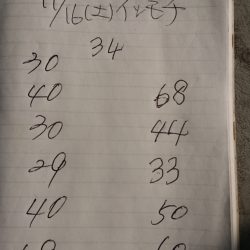 11/16(土)イッモチ
34
30
40 68
30 44
29 33
40 50
60